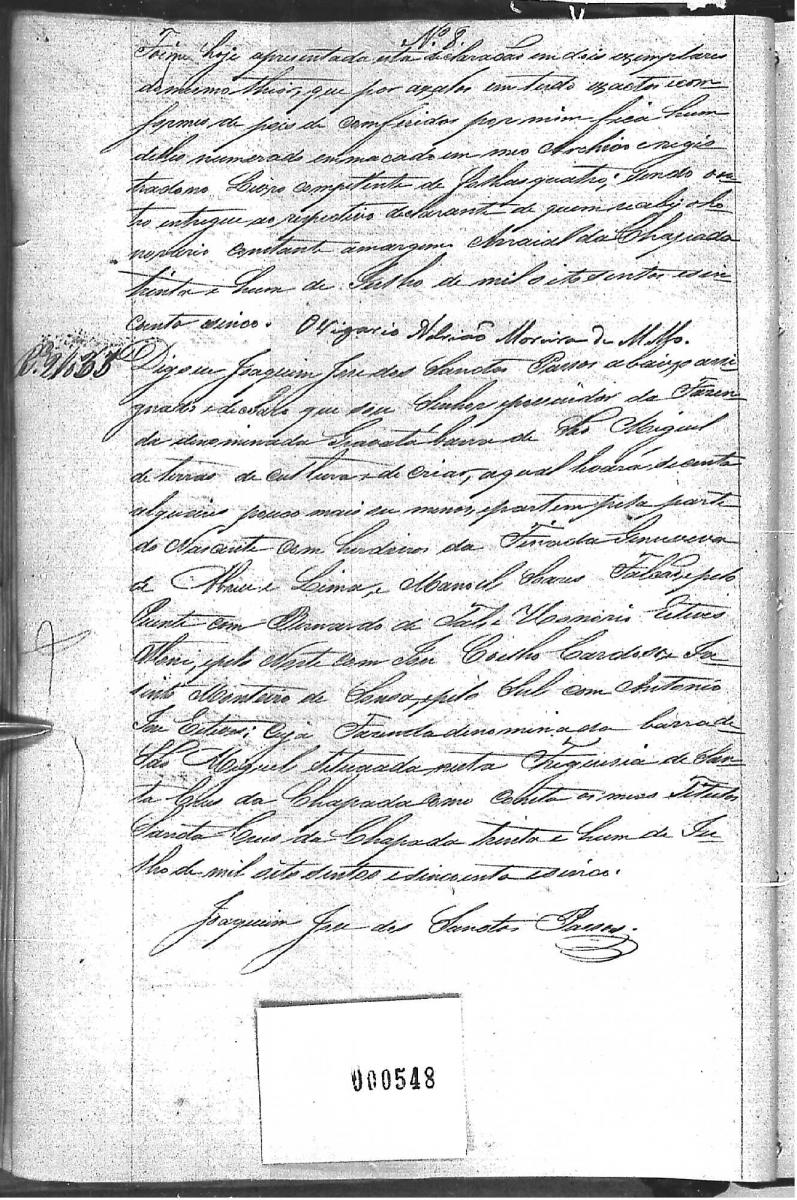 N.º 8.
Foime hoje apresentada esta declaração em dois exemplares
do mesmo theor, que por axalos em tudo exactos e com-
formes, de pois de comferidos por mim fica hum
delles numerado emmaçado em meo Archivo e regis
trado no Livro competente de folhas quatro; sendo o ou-
tro entregue ao respectivo declarante de quem recebi o ho-
norario constante a margem. Arraial da Chapada
trinta e hum de Julho de mil oitosentos e sin-
coenta e sinco. O Vigario Moreira de
Digo eu Joaquim Jose dos Sanctos Passos abaixo assi-
gnado e declaro que sou Senhor e possuidor da Fazen-
da denominada Gravatá barra de São Miguel
de terras de cultura e de criar, a qual levará
alqueires pouco mais ou menos, e partem pela parte
do Nascente com herdeiros da Finada
de Abreu e Lima, e Manoel Soares e pelo
Puente com Bernardo da e Honorio Esteves
e pelo Norte com Jose Coelho Cardoso, e Ja-
sinto Monteiro de Sousa, e pelo Sul com Antonio
Jose Esteves; cuja Fazenda denominada barra de
São Miguel situada nesta Freguesia de San-
ta Crus da Chapada como consta os meus Titulos
Sancta Crus da Chapada trinta e hum de Ju-
lho de mil oito sentos e sincoenta e sinco.
Joaquim Jose dos Sanctos Passos.
000548